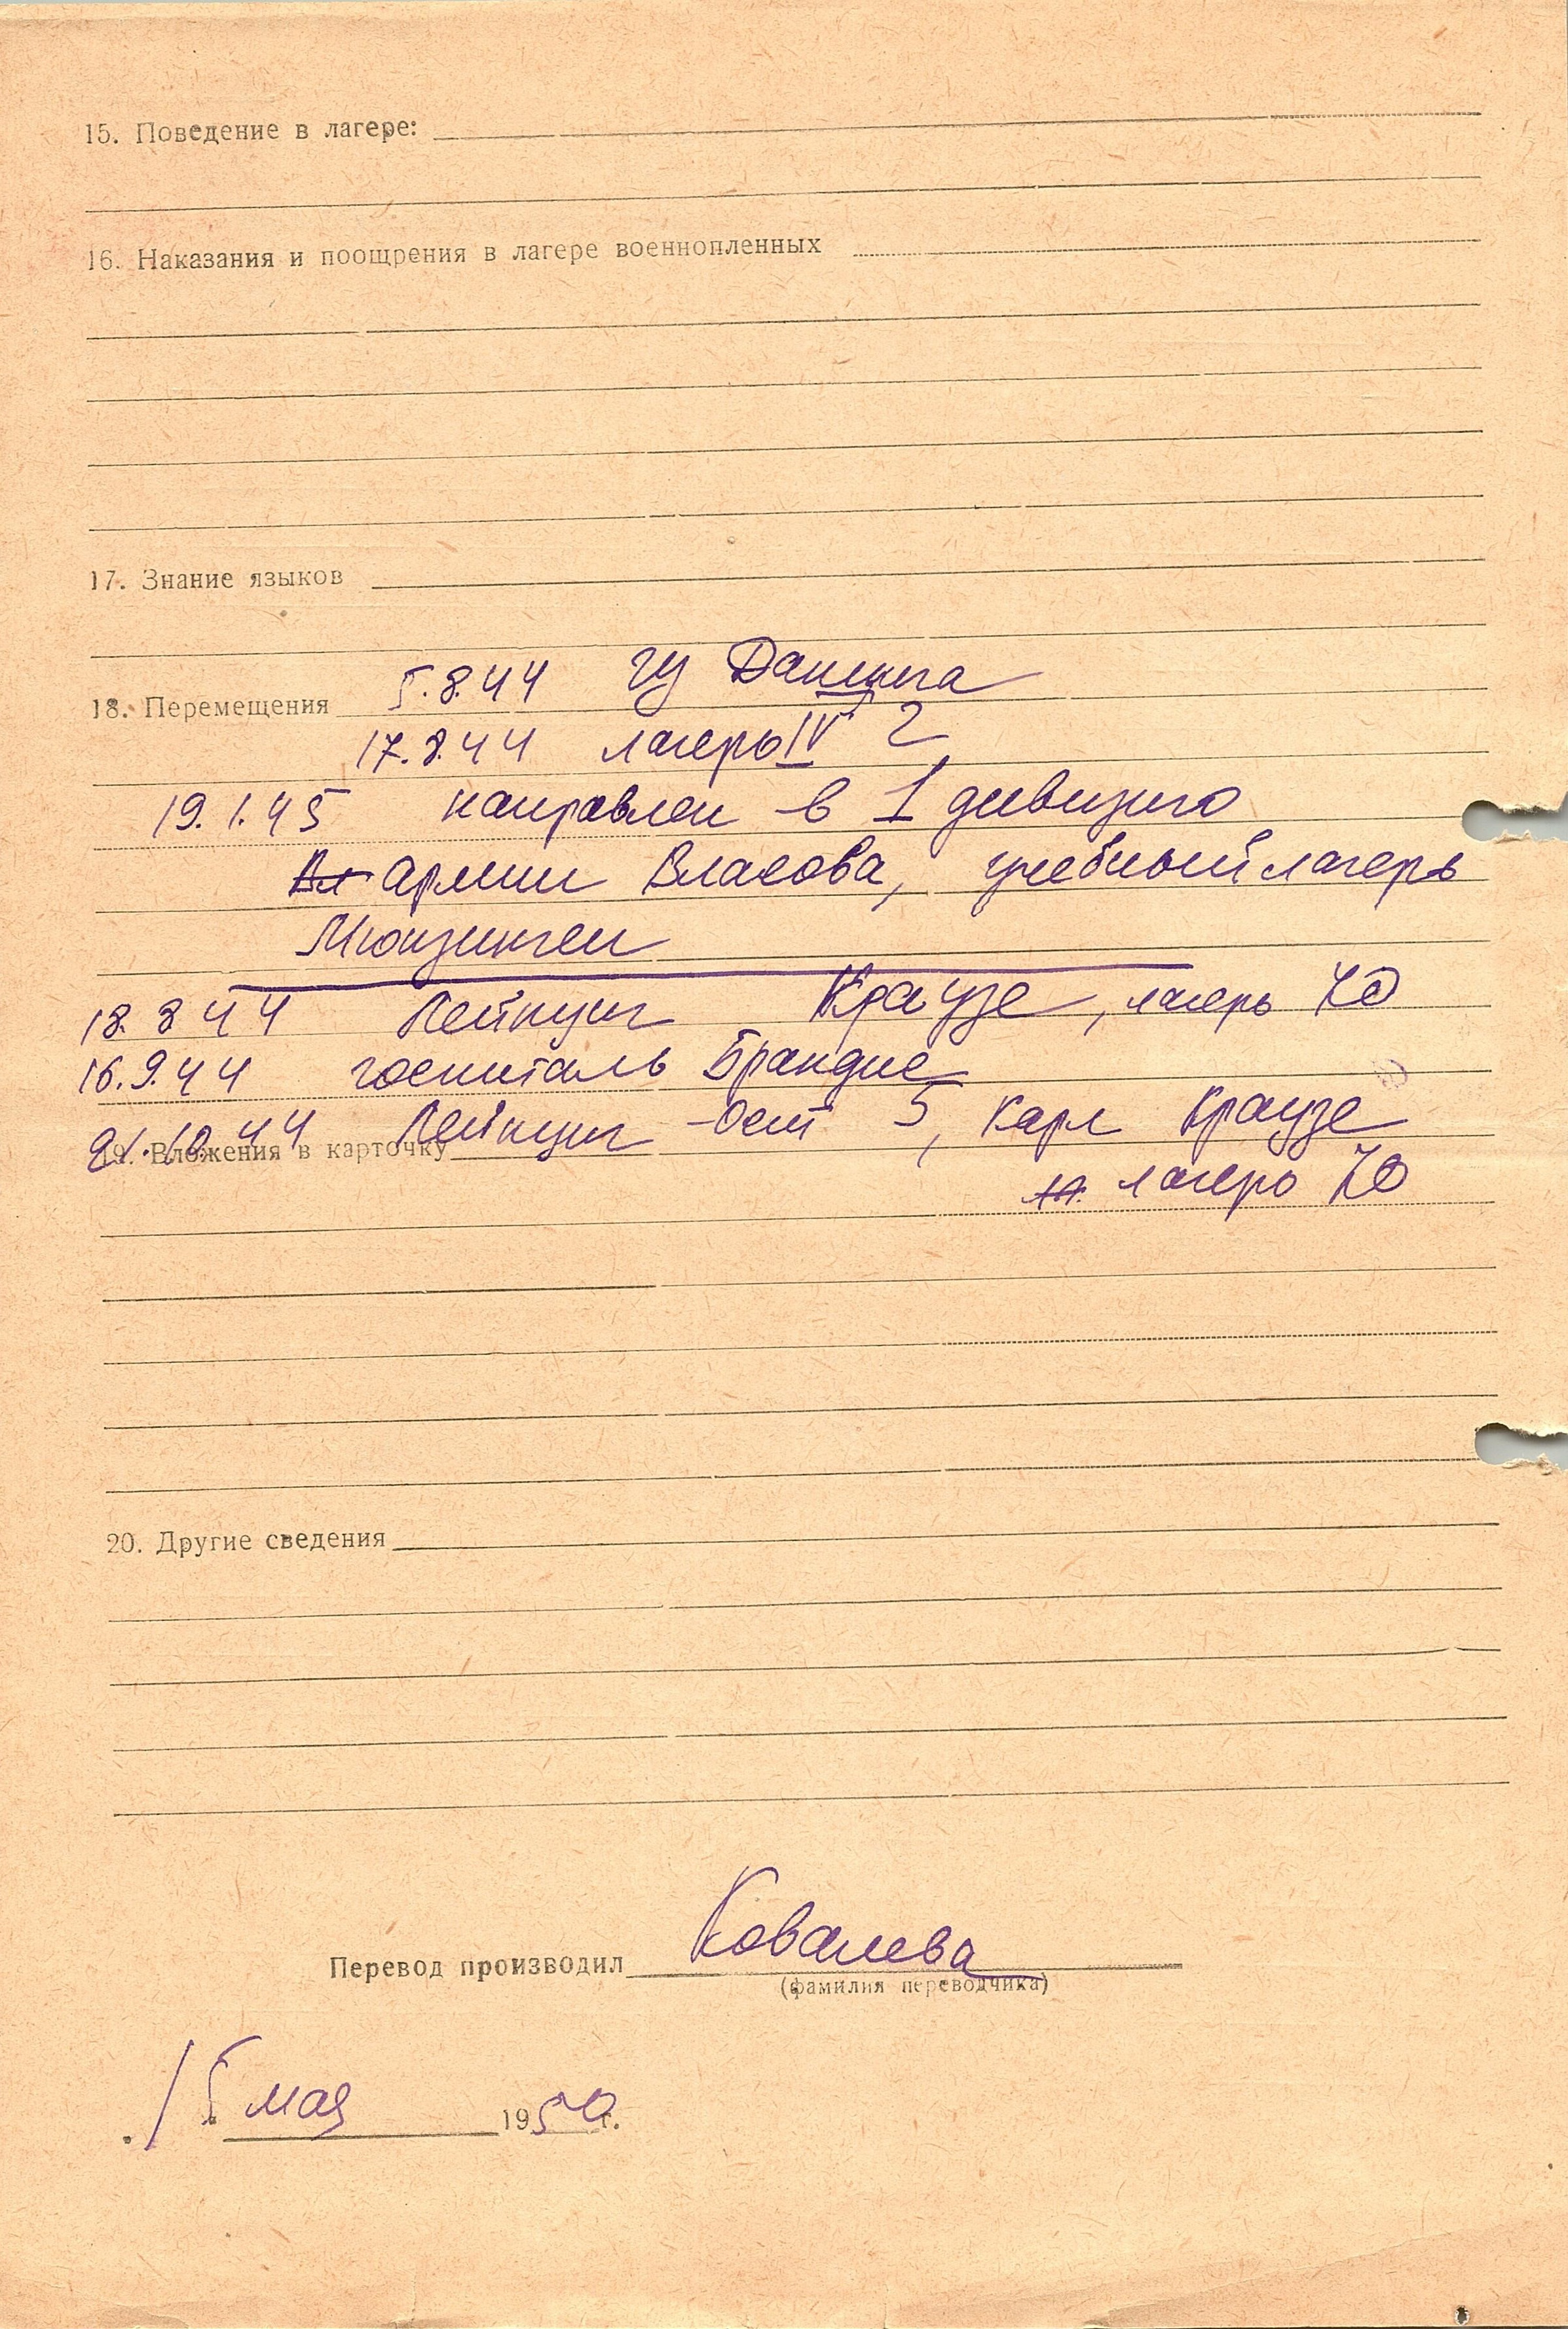 15. Поведение в лагере:
16. Наказания и поощрения в лагере военнопленных
17. Знание языков
18. Перемещения 5.8.44 из Данцига
17.8.44 лагерь IV г
19.1.45 направлен в 1 дивизию
Вл армии Власова, учебный лагерь
Мюнзинген
18.8 44 Лейпциг Краузе, лагерь 70
16.9.44 госпиталь Брандис
21.10.44 Лейпциг-Ост 5, Карл Краузе
19. Вложения в карточку
лагерь 70
20. Другие сведения
Перевод производил Ковалева
(фамилия переводчика)
15 мая 1950г.